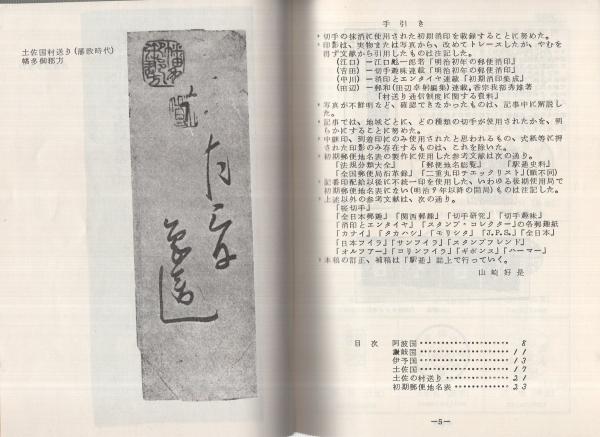 土佐国村送り(藩政時代)
幡多御郡方
手引き
・切手の抹消に使用された初期消印を載録することに努めた。
・印影は、実物または写真から、改めてトレースしたが、やむを
得ず文献から引用したものは注記した。
(江口)―江口魁一郎著「明治初年の郵便消印」
(吉田)―切手趣味連載「明治初年の郵便消印」
(中川)―消印とエンタイヤ連載「初期消印集成」
(田辺)―郵和(田辺卓躬編集)連載,香宗我部秀雄著
「村送り通信制度に関する資料」
・写真が不鮮明など、確認できなかったものは、記事中に解説し
た。
・記事では、地域ごとに、どの種類の切手が使用されたかを、明
らかにすることに努めた。
・中継印、到着印にのみ使用されたと思われるもの、式紙等に押
された印影のみ存在するものは、これを除いた。
・初期郵便地名表の製作に使用した参考文献は次の通り。
「法規分類大全」 「郵便地名総覧」 「駅逓史料」
「全国郵便局沿革録」「二重丸印チェックリスト」(順不同)
・記番印配給以後に不統一印を使用した、いわゆる後期使用局で
初期郵便地名表にない(明治9年以降の開局)ものは注記した。
・上述以外の参考文献は、次の通り。
「竜切手」
「全日本郵趣」「関西郵趣」「切手研究」「切手趣味」
「消印とエンタイヤ」「スタンプ・コレクター」の各郵趣紙
「カナイ」「タカハシ」「モリシタ」「J.P.S.」「全日本」
「日本フイラ」「サンフイラ」「スタンプフレンド」
「オルフアー」「コリンフイラ」「ギボンス」「ハーマー」
・本稿の訂正、補稿は「駅逓」誌上で行っていく。
山崎好是
目次 阿波国・・・・・・・・・・・・・・・・・・8
讃岐国・・・・・・・・・・・・・・・・・・11
伊予国・・・・・・・・・・・・・・・・・・13
土佐国・・・・・・・・・・・・・・・・・・17
土佐の村送り・・・・・・・・・・・・21
初期郵便地名表・・・・・・・・・・23
―5―